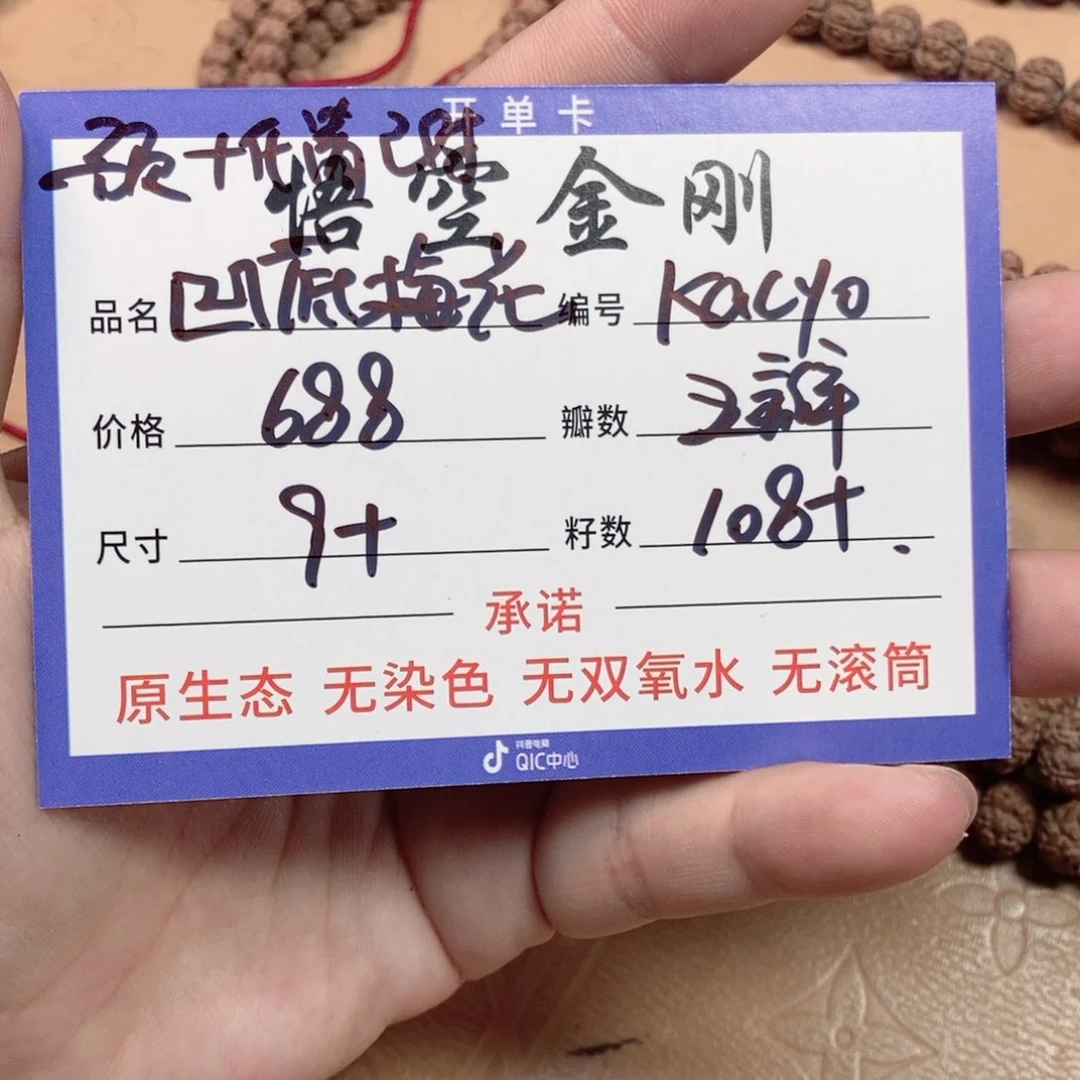 开单卡
悟空金刚
品名 凹底梅花 编号 Kacyo
价格 688 瓣数 五瓣
尺寸 9+ 籽数 108+.
承诺
原生态 无染色 无双氧水 无滚筒
抖音电商
QIC中心